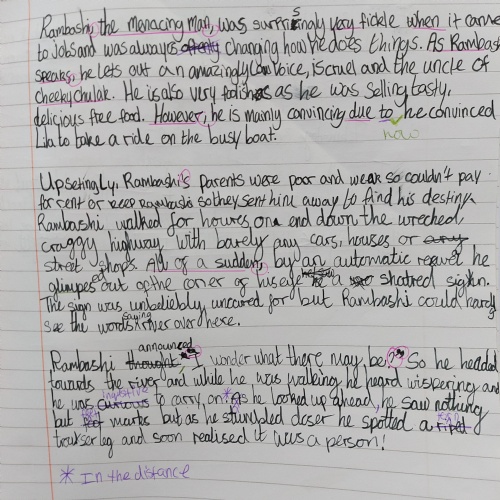 Rambashi, the menacing man, was surprisingly very fickle when it came
to Jobs and was always changing how he does things. As Rambashi
speaks, he lets out an amazingly low voice, is cruel and the uncle of
cheeky chulak. He is also very foolish as he was selling tasty,
delicious free food. However, he is mainly convincing due to how he convinced
Lila to take a ride on the busy boat.
Upsetingly, Rambashi's parents were poor and weak so couldn't pay
for rent or keep rambashi so they sent him away to find his destiny.
Rambashi walked for houres on end down the wreched,
craggy highway with barely any cars, houses or
street shops. All of a sudden, by an automatic he
glimpsed out of the coner of his eye a shatred sign.
The sign was unbelievbly uncared for but Rambashi could hardly
see the words saying river over here.
Rambashi announced "I wonder what there may be?" So he headed
towards the river and while he was walking he heard wispering and
he was inquisitive to carry on * As he looked up ahead, he saw nothing
but marks but as he stumbled closer he spotted a ripped
trouser leg and soon realised it was a person!
* In the distance